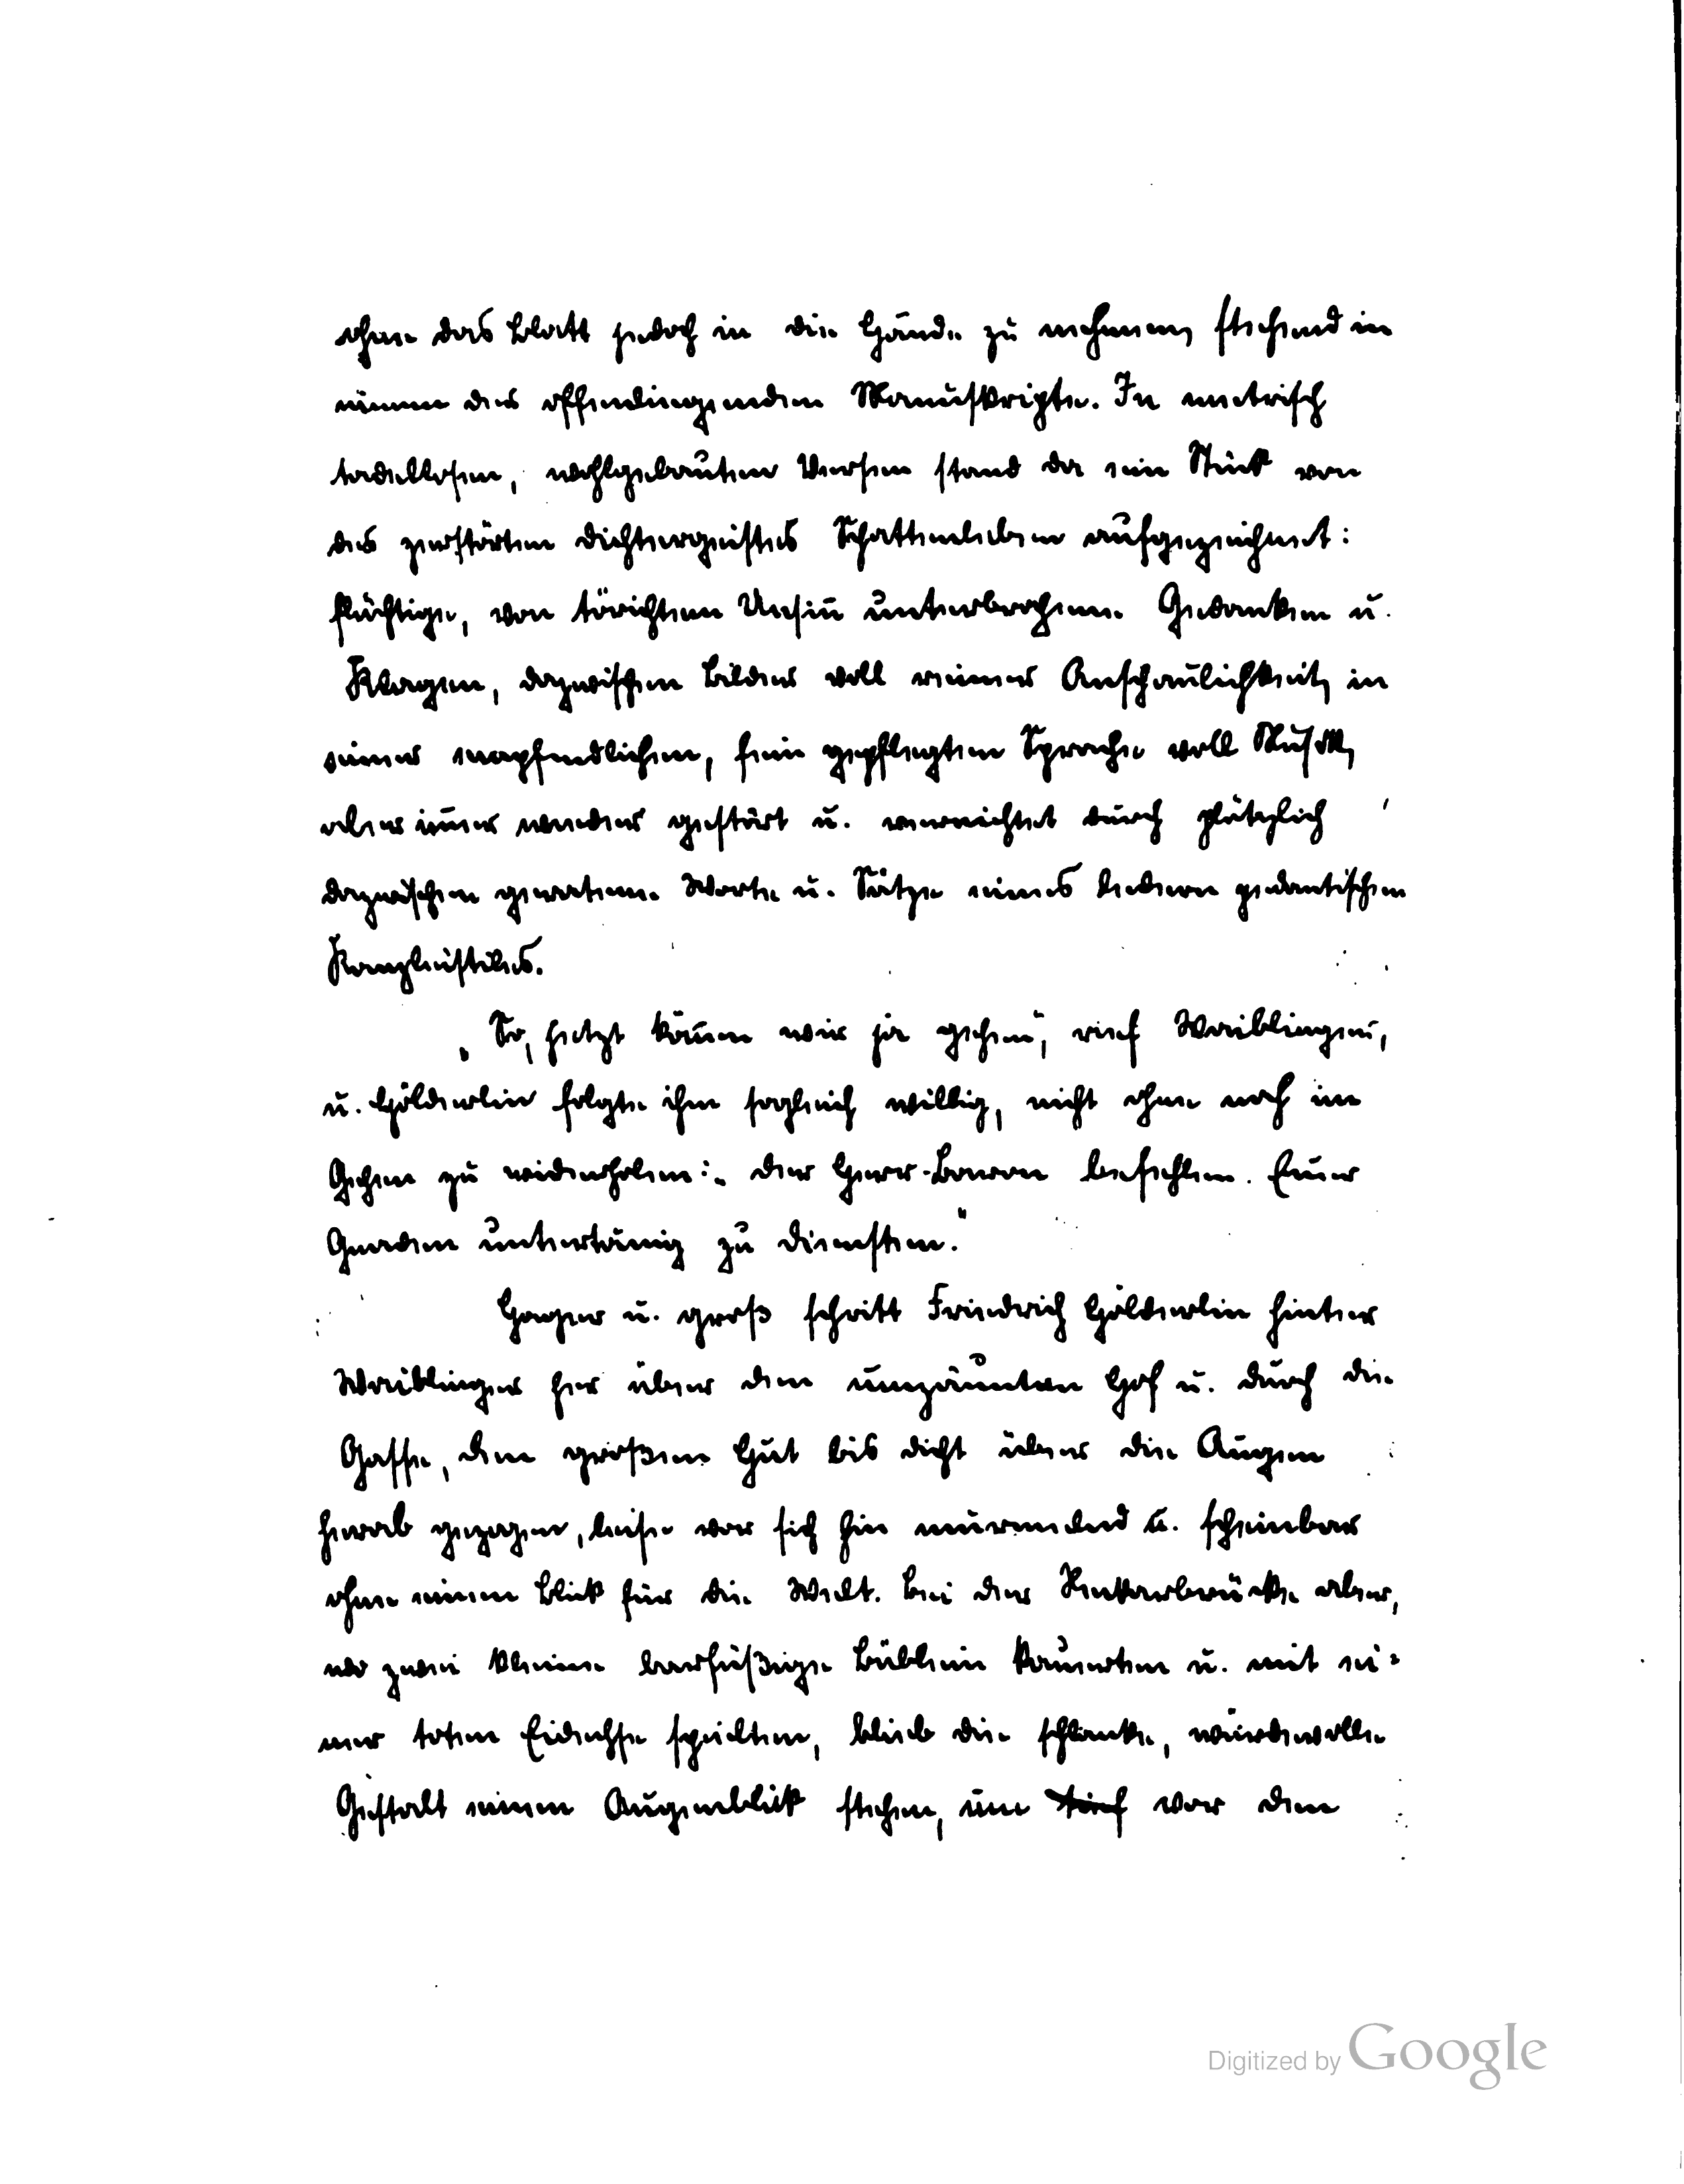 ohne das Blatt jedoch in die Hände zu nehmen, stehend in
einem der offenliegenden Manuskripte. In metrisch
tadellosen, wohlgebauten Versen stand da ein Stück von
des zerstörten Dichtergeistes Schattenleben aufgezeichnet:
flüchtige, von törichtem Unsin̄ unterbrochene Gedanken u.
Klagen, dazwischen Bilder voll reiner Anschaulichkeit, in
einer empfindlichen, fein gepflegten Sprache voll Musik,
aber im̄er wieder gestört u. vernichtet durch plötzlich
dazwischen geratene Worte u. Sätze eines ledern pedantischen
Kanzleistiles.
„So, jetzt kön̄en wir ja gehen", rief Waiblinger,
u. Hölderlin folgte ihm sogleich willig, nicht ohne noch im
Gehen zu widerholen: „der Herr Baron befehlen. Euer
Gnaden untertänig zu diensten."
Hager u. groß schritt Friedrich Hölderlin hinter
Waiblinger her über den umzäunten Hof u. durch die
Gasse, den großen Hut bis dicht über die Augen
herab gezogen, leise vor sich hin murmelnd u. scheinbar
ohne einen Blick für die Welt. Bei der Nekarbrücke aber,
wo zwei kleine barfüßige Büblein kauerten u. mit ei-
ner toten Eidechse spielten, blieb die schlanke, würdevolle
Gestalt einen Augenblick stehen, um tief vor den
Digitized by Google